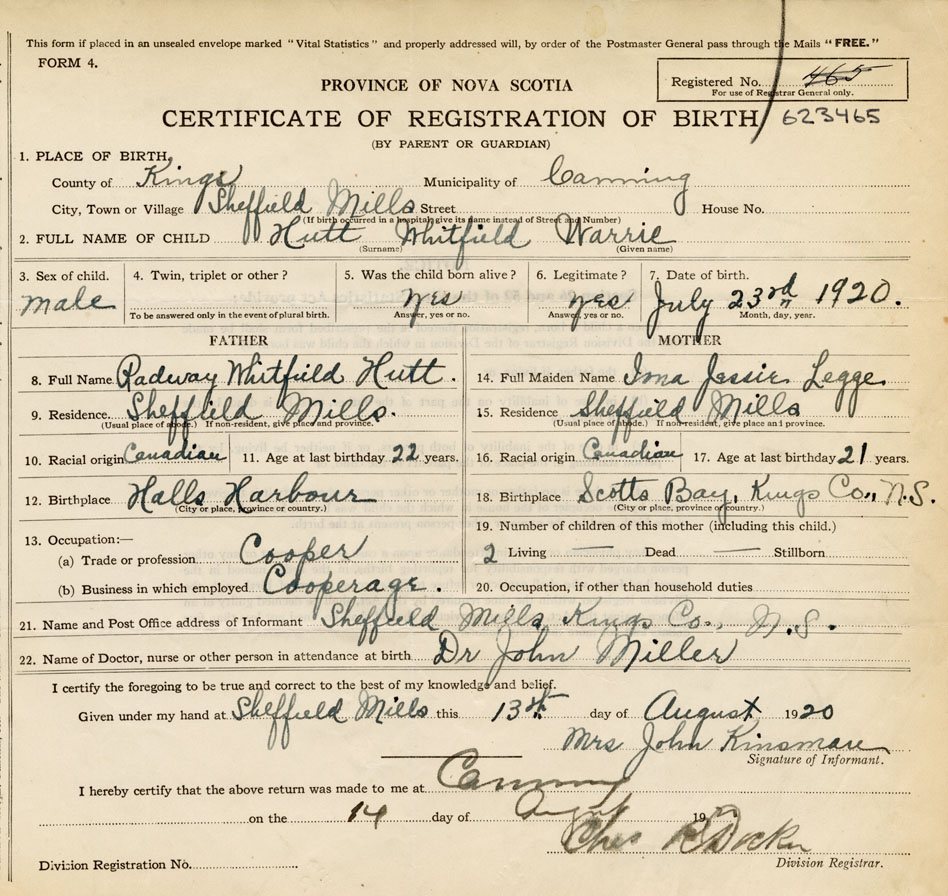 This form if placed in an unsealed envelope marked "Vital Statistics" and properly addressed will, by order of the Postmaster General pass through the Mails "FREE."
FORM 4.
Registered No. 465
For use of Registrar General only.
PROVINCE OF NOVA SCOTIA
CERTIFICATE OF REGISTRATION OF BIRTH 623465
(BY PARENT OR GUARDIAN)
1. PLACE OF BIRTH,
County of Kings Municipality of Canning
City, Town or Village Sheffield Mills Street House No.
(If birth occurred in a hospital give its name instead of Street and Number)
2. FULL NAME OF CHILD Hutt Whitfield Warrie
(Surname) (Given name)
3. Sex of child. 4. Twin, triplet or other? 5. Was the child born alive? 6. Legitimate? 7. Date of birth.
male yes yes July 23rd 1920.
To be answered only in the event of plural birth. Answer, yes or no. Answer, yes or no. Month, day, year.
FATHER MOTHER
8. Full Name Radway Whitfield Hutt. 14. Full Maiden Name Iona Jessie Legge
9. Residence Sheffield Mills. 15. Residence Sheffield Mills
(Usual place of abode.) If non-resident, give place and province. (Usual place of abode.) If non-resident, give place and province.
10. Racial origin Canadian 11. Age at last birthday 22 years. 16. Racial origin Canadian 17. Age at last birthday 21 years.
12. Birthplace Halls Harbour 18. Birthplace Scotts Bay, Kings Co., N.S.
(City or place, province or country.) (City or place, province or country.)
13. Occupation:— 19. Number of children of this mother (including this child.)
(a) Trade or profession Cooper 2 Living — Dead — Stillborn
(b) Business in which employed Cooperage. 20. Occupation, if other than household duties
21. Name and Post Office address of Informant Sheffield Mills, Kings Co., N.S.
22. Name of Doctor, nurse or other person in attendance at birth Dr John Miller
I certify the foregoing to be true and correct to the best of my knowledge and belief.
Given under my hand at Sheffield Mills this 13th day of August 1920
Mrs John Kinsman
Signature of Informant.
I hereby certify that the above return was made to me at Canning
on the 14 day of August 19
Chas
Division Registration No. Division Registrar.